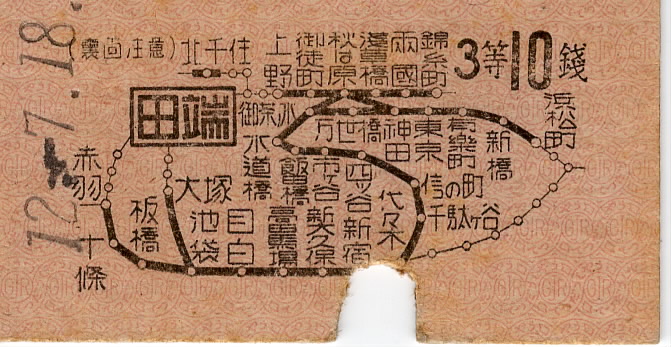 12.-7.18.
(裏面注意)
3等10錢
田端
北千住
上野
御徒町
秋原
淺草橋
兩國
錦糸町
御茶ノ水
水道橋
飯田橋
市ヶ谷
四ツ谷
信の町
千駄ヶ谷
代々木
万世橋
神田
東京
有樂町
新橋
浜松町
赤羽
十條
板橋
大塚
池袋
目白
高田馬場
新大久保
新宿